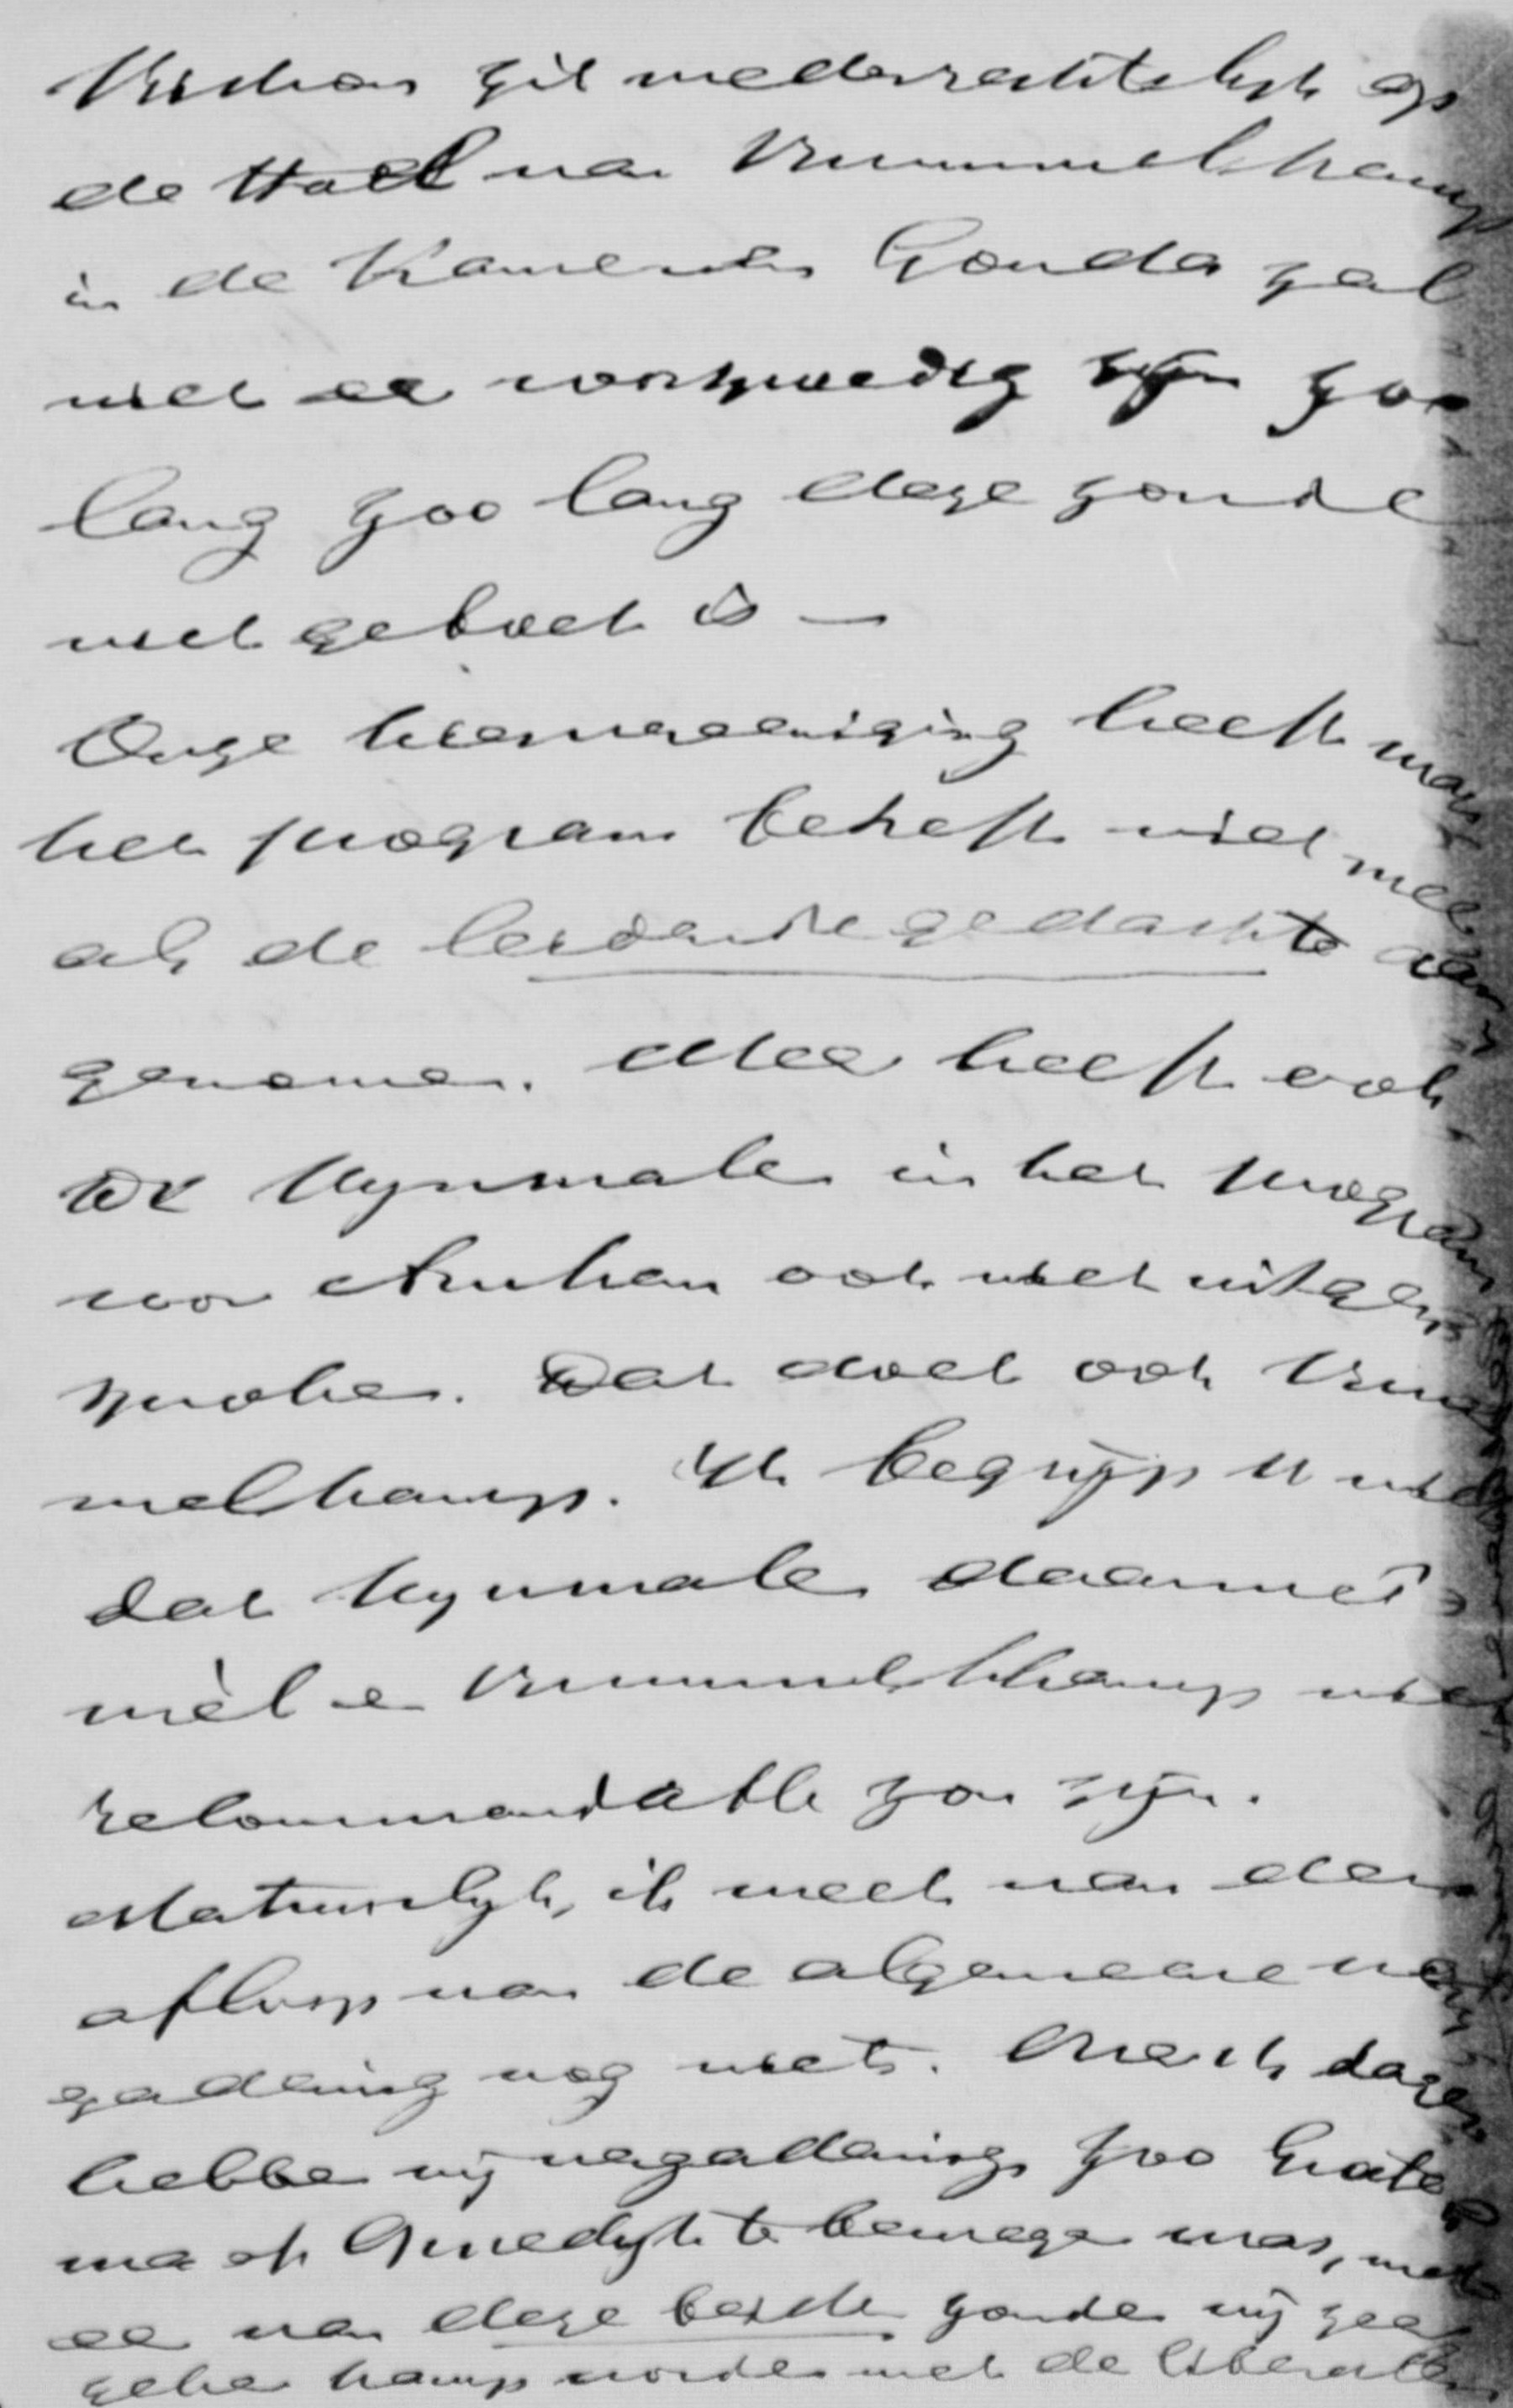 zit wederrechtelijk op
de stoel van Brummelkamp
in de Kamer en Gouda zal
niet ee voorspoedig zijn zoo
lang zoo lang deze zonde
niet geboet is —
Onze kiesvereeniging heeft wat
het program betreft niet meer
als de leidende gedachte aan
genomen. Mee heeft ook
Dr Wynmalen in het program
voor Arnhem ook niet uitge
sproken. Dat doet ook Brum
melkamp. Ik begrijp U niet
dat Wynmalen daarmee
wèl e Brummelkamp niet
recommandable zou zijn.
Natuurlijk, ik weet van den
afloop van de algemeene ver
gadering nog niets. dagen
hebben wij vergadering zoo Grate
ma of te bewegen was, met
ee van deze beide zouden wij zee
zeker kamp worden met de liberalen